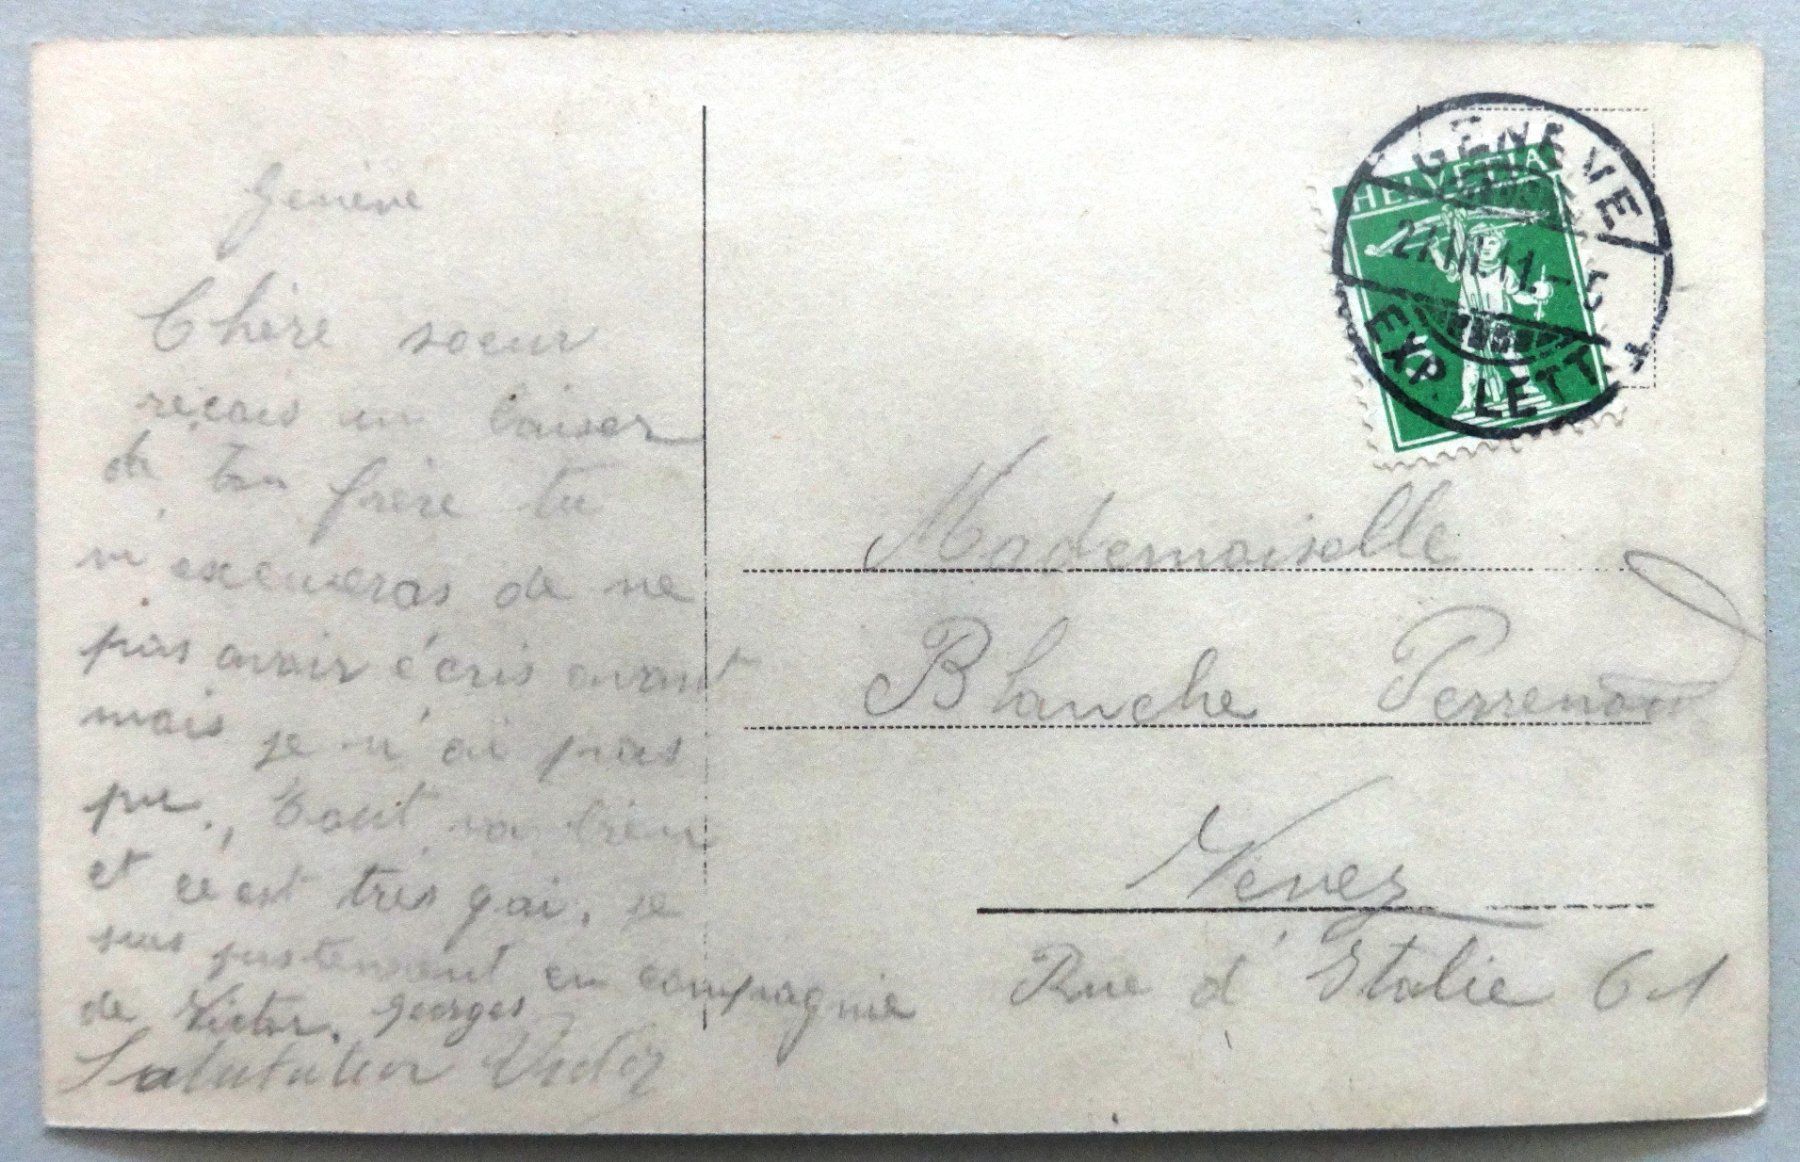 Genève
Chère soeur
reçois un baiser
de ton frère tu
m'exeuseras de ne
pas avoir écris avant
mais je n'ai pas
pu. Tout va bien
et c'est très gai. je
suis justement en compagnie
de Victor. Georges
Salutation Victor
HELVETIA
GENÈVE
EXP. LETT.
Mademoiselle
Blanche Perrenoud
Vevey
Rue d'Italie 61